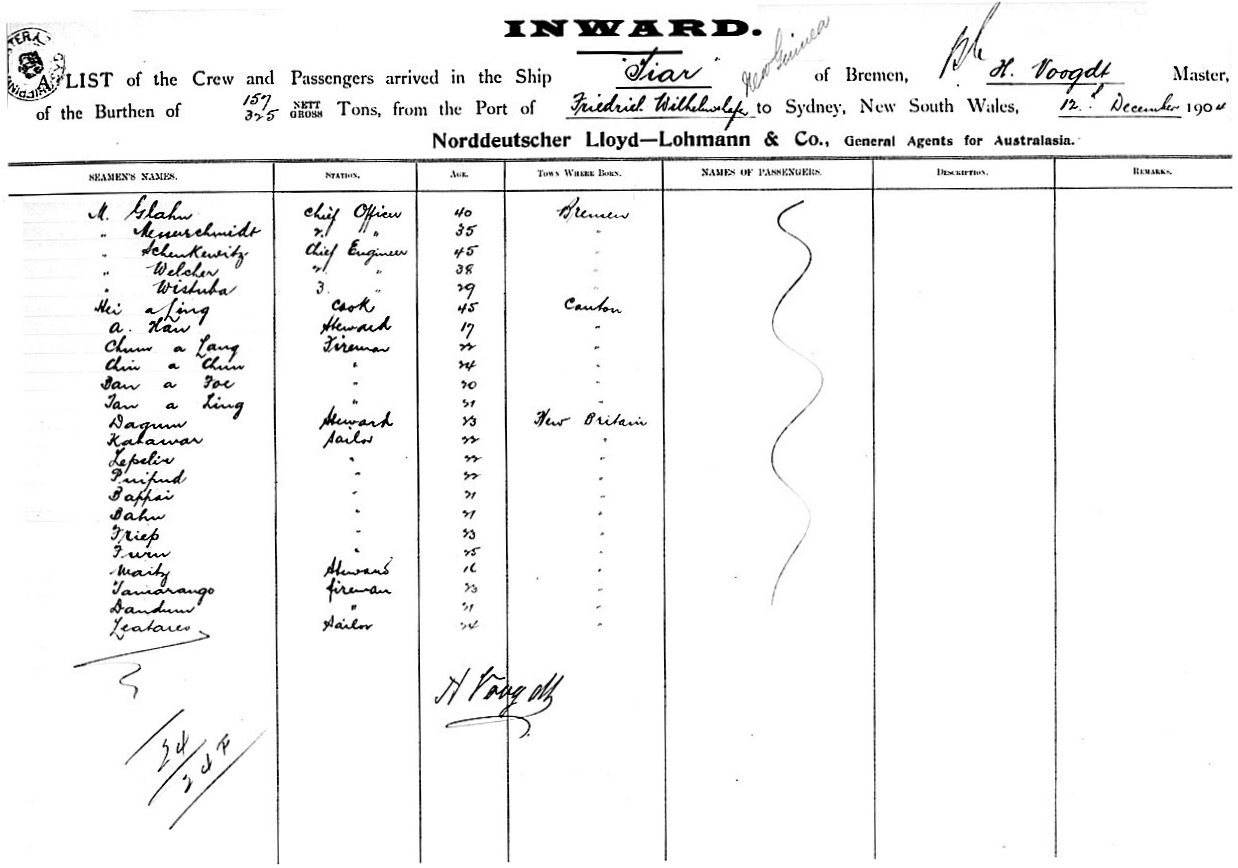 INWARD.
A LIST of the Crew and Passengers arrived in the Ship "Siar" New Guinea of Bremen, H. Voogdt Master,
of the Burthen of 157 NETT 325 GROSS Tons, from the Port of Friedrich Wilhelmshafen to Sydney, New South Wales, 12. December 1904
Norddeutscher Lloyd—Lohmann & Co., General Agents for Australasia.
SEAMEN'S NAMES. STATION. AGE. TOWN WHERE BORN. NAMES OF PASSENGERS. DESCRIPTION. REMARKS.
M. Glahn Chief Officer 40 Bremen
" Messerschmidt 2. " 35 "
" Schenkewitz Chief Engineer 45 "
" Welcher 2. " 38 "
" Wistuba 3. " 29 "
Hei a Ling Cook 45 Canton
A. Han Steward 17 "
Chum a Lang Fireman 22 "
Chin a Chun " 24 "
Ban a Foe " 20 "
Tan a Ling " 21 "
Dagum Steward 23 New Britain
Katawar Sailor 22 "
" 22 "
" 22 "
Bappai " 21 "
Bahn " 21 "
" 23 "
" 25 "
Maitz Steward 16 "
Tamarango fireman 23 "
Dandum " 21 "
Sailor 24 "
H Voogdt
24
24 F